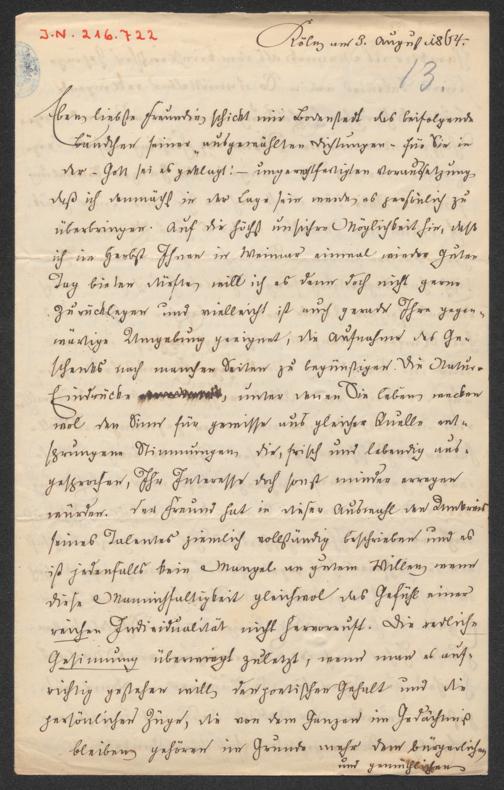 I.N. 216.722
Köln am 3. August 1864.
13.
Eben, liebste Freundin, schickt mir Bodenstedt das beifolgende
Bändchen seiner „ausgewählten Dichtungen“ für Sie in
der – Gott sei es geklagt! – ungerechtfertigten Voraussetzung,
daß ich demnächst in der Lage sein werde, es persönlich zu
überbringen. Auf die höchst unsichre Möglichkeit hin, daß
ich im Herbst Ihnen in Weimar einmal wieder guten
Tag bieten dürfte, will ich es denn doch nicht gerne
zurücklegen und vielleicht ist auch gerade Ihre gegen-
wärtige Umgebung geeignet, die Aufnahme des Ge-
schenks nach manchen Seiten zu begünstigen. Die Natur-
Eindrücke, unter denen Sie leben, wecken
wol den Sinn für gewisse aus gleicher Quelle ent-
sprungene Stimmungen, die, frisch und lebendig aus-
gesprochen, Ihr Interesse doch sonst minder erregen
würden. Der Freund hat in dieser Auswahl den
seines Talentes ziemlich vollständig beschrieben und es
ist jedenfalls kein Mangel an gutem Willen, wenn
diese Mannichfaltigkeit gleichwol das Gefühl einer
reichen Individualität nicht hervorruft. Die redliche
Gesinnung überwiegt zuletzt, wenn man es auf-
richtig gestehen will, den poetischen Gehalt und die
persönlichen Züge, die von dem Ganzen im Gedächtniß
bleiben, gehören im Grunde mehr dem bürgerlichen
und gemüthlichen